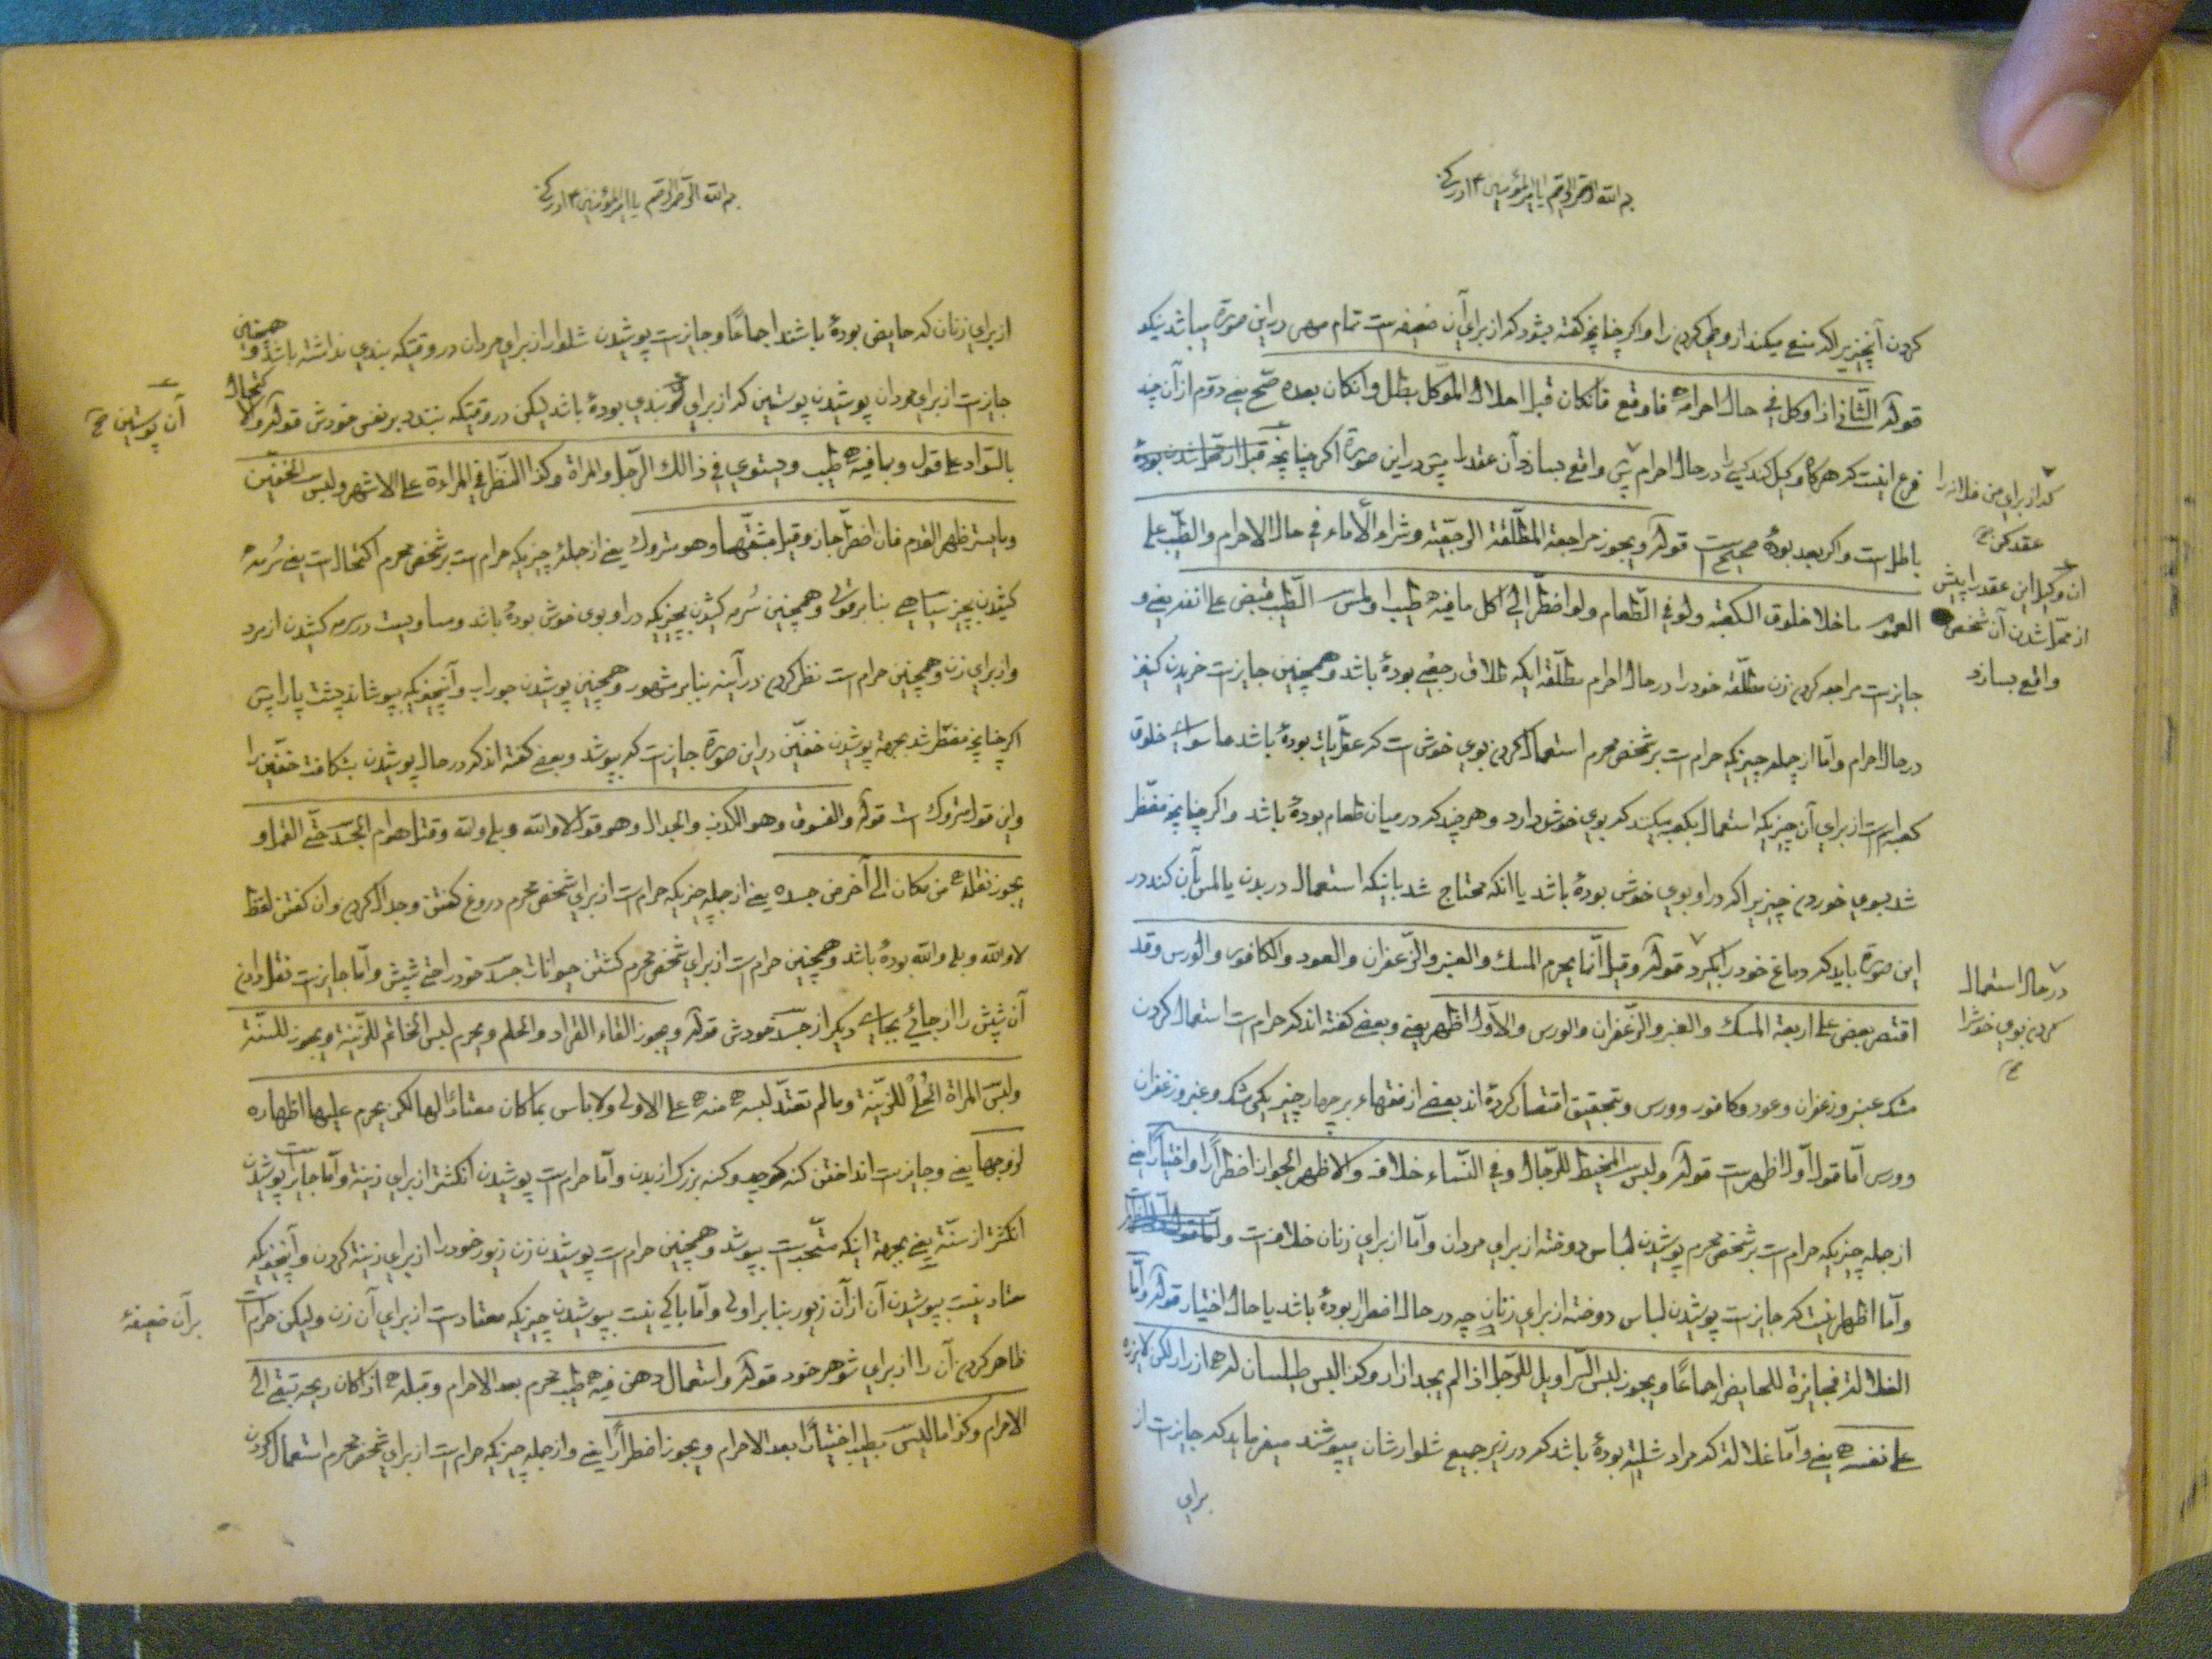 بسم الله الرحمن الرحیم یا امیر المؤمنین ادرکنی
کردن آنچیزیرا که منع میکند از وطی کردن را و اکر چنانچه کفته بشود که از برای آن ضعیفه است تمام مهر در این صورة میباشد نیکو
قوله الثانی اذا وکل فی حال احرامه فاوقع فانکان قبل احلال الموکل بطل وانکان بعده صح یعنی دوم از آن چند
فرع اینست که هرکاه وکیل کند کسی را در حال احرام پس واقع بسازد آن عقد را پس در این صورة اکر چنانچه قبل از محل شدن بوده
باطل است و اکر بعد بوده صحیح است قوله ویجوز مراجعة المطلقة الرجعیة وشراء الاماء فی حال الاحرام والطیب علی
العموم ما خلا خلوق الکعبة ولو فی الطعام ولو اضطر الی اکل ما فیه طیب او لمس الطیب قبض علی انفه یعنی و
جایزست مراجعه کردن زن مطلقه خود را در حال احرام مطلقه ایکه طلاق رجعی بوده باشد و همچنین جایزست خریدن کنیز
در حال احرام و اما از جمله چیزیکه حرام ست بر شخص محرم استعمال کردن بوی خوش ست که عطریات بوده باشد ما سوای خلوق
کعبه از برای آن چیزیکه استعمال بکعبه میکنند که بوی خوش دارد و هرچند که در میان طعام بوده باشد و اکر چنانچه مضطر
شد بسوی خوردن چیزیرا که در او بوی خوش بوده باشد یا انکه محتاج شد باینکه استعمال در بدن یا لمس بآن کند در
این صورة باید که دماغ خود را بکیرد قوله وقیل انما یحرم المسک والعنبر والزعفران والعود والکافور والورس وقد
اقتصر بعض علی اربعة المسک والعنبر والزعفران والورس والاول اظهر یعنی و بعضی کفته اند که حرام ست استعمال کردن
مشک عنبر و زعفران و عود و کافور و ورس و بتحقیق اقتصار کرده اند بعضی از فقهاء بر چهار چیز یکی مشک و عنبر و زعفران
و ورس اما قول اول اظهر ست قوله ولبس المخیط للرجال وفی النساء خلاف والاظهر الجواز اضطرارا واختیارا یعنی
از جمله چیزیکه حرام ست بر شخص محرم پوشیدن لباس دوخته از برای مردان و اما از برای زنان خلافست
و اما اظهر اینست که جایزست پوشیدن لباس دوخته از برای زنان چه در حال اضطرار بوده باشد یا حال اختیار قوله واما
الغلالة فجایزة للحایض اجماعا ویجوز لبس السراویل للرجل اذا لم یجد ازارا وکذا لبس طیلسان له ازرار لکن لا یزره
علی نفسه یعنی و اما غلالة که مراد شلیته بوده باشد که در زیر جمیع شلوارشان میپوشند میفرماید که جایزست از
برای
که از برای من فلانه را
عقد کن صح
ان وکیل این عقد را پیش
از محل شدن آن شخص
واقع بسازد
در حال استعمال
کردن بوی خوشرا
صح
بسم الله الرحمن الرحیم یا امیر المؤمنین ادرکنی
از برای زنان که حایض بوده باشند اجماعا و جایزست پوشیدن شلوار از برای مردان در وقتیکه بندی نداشته باشد و همچنین
جایزست از برای مردان پوشیدن پوستین که از برای او بندی بوده باشد لیکن در وقتیکه نبندد بر نفس خودش قوله والاکتحال
بالسواد علی قول وبما فیه طیب ویستوی فی ذالک الرجل والمراة وکذا النظر فی المراءة علی الاشهر ولبس الخفین
وما یستر ظهر القدم فان اضطر جاز وقیل یشقهما وهو متروک یعنی از جملهٔ چیزیکه حرام است بر شخص محرم اکتحال ست یعنی سُرمه
کشیدن بچیز سیاهی بنا بر قولی و همچنین سُرمه کشیدن بچیزیکه در او بوی خوش بوده باشد و مساویست در سرمه کشیدن از مرد
و از برای زن و همچنین حرام ست نظر کردن در آینه بنا بر مشهور و همچنین پوشیدن جوراب و آنچیزیکه بپوشاند پشت پا را پس
اکر چنانچه مضطر شد بجهة پوشیدن خفین در این صورة جایزست که بپوشد و بعضی کفته اند که در حال پوشیدن بشکافد خفین را
و این قول متروک ست قوله والفسوق وهو الکذب والجدال وهو قول لا والله وبلی والله وقتل هوام الجسد حتی القمل و
یجوز نقله من مکان الی آخر من جسده یعنی از جمله چیزیکه حرام ست از برای شخص محرم دروغ کفتن و جدال کردن و ان کفتن لفظ
لا والله و بلی والله بوده باشد و همچنین حرام ست از برای شخص محرم کشتن حیوانات جسد خود را حتی شپش و اما جایزست نقل دادن
آن شپش را از جائی بجای دیکر از جسد خودش قوله ویجوز القاء القراد والحلم ویحرم لبس الخاتم للزینة ویجوز للسنة
ولبس المراة الحلی للزینة وما لم تعتد لبسه منه علی الاولی ولا باس بما کان معتادا لها لکن یحرم علیها اظهاره
لزوجها یعنی و جایزست انداختن کنه کوچک و کنه بزرک از بدن و اما حرام ست پوشیدن انکشتر از برای زینة و اما جایزست پوشیدن
انکشتر از سنة یعنی بجهة اینکه مستحبست بپوشد و همچنین حرام ست پوشیدن زن زیور خود را از برای زینة کردن و آنچیزیکه
معتاد نیست بپوشیدن آن از آن زیور بنا بر اولی و اما باکی نیست بپوشیدن چیزیکه معتادست از برای آن زن و لیکن حرام ست
ظاهر کردن آن را از برای شوهر خود قوله واستعمال دهن فیه طیب محرم بعد الاحرام وقبله اذا کان ریحه تبقی الی
الاحرام وکذا ما لیس بطیب اختیارا بعد الاحرام ویجوز اضطرارا یعنی و از جمله چیزیکه حرام ست از برای شخص محرم استعمال کردن
آن پوستین صح
بر آن ضعیفهٔ